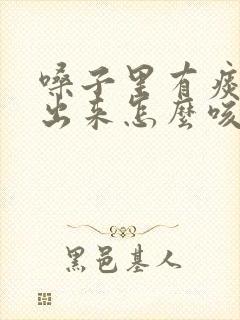 嗓子里有痰
出来怎麽咳
黑邑基人